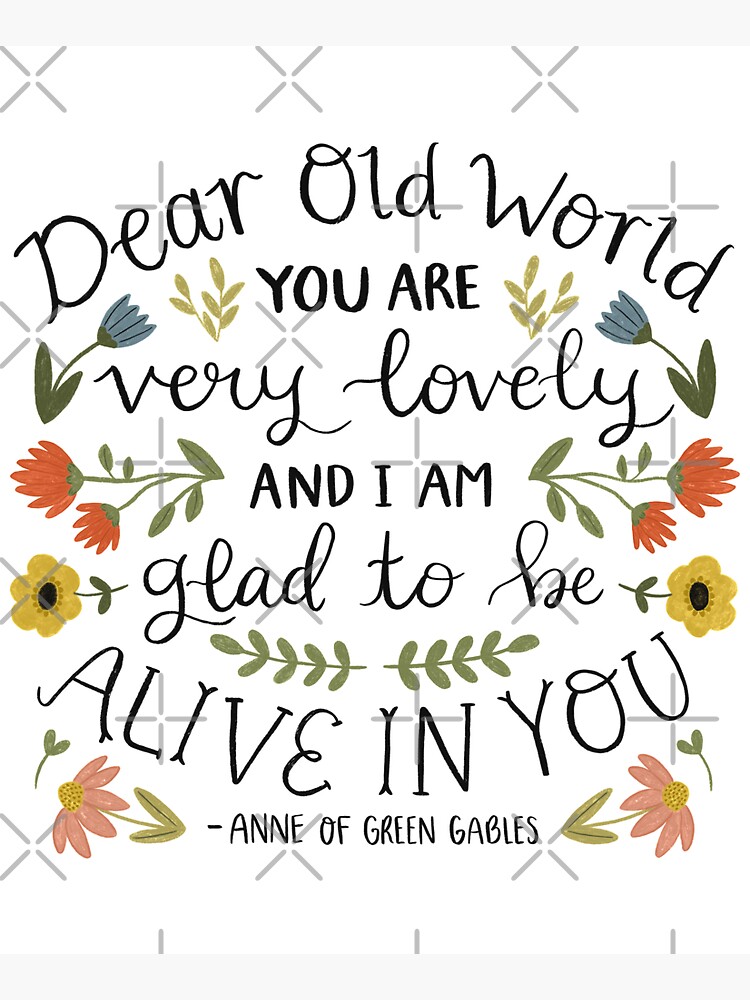 Dear Old World
YOU ARE
very lovely
AND I AM
glad to be
ALIVE IN YOU
-ANNE OF GREEN GABLES